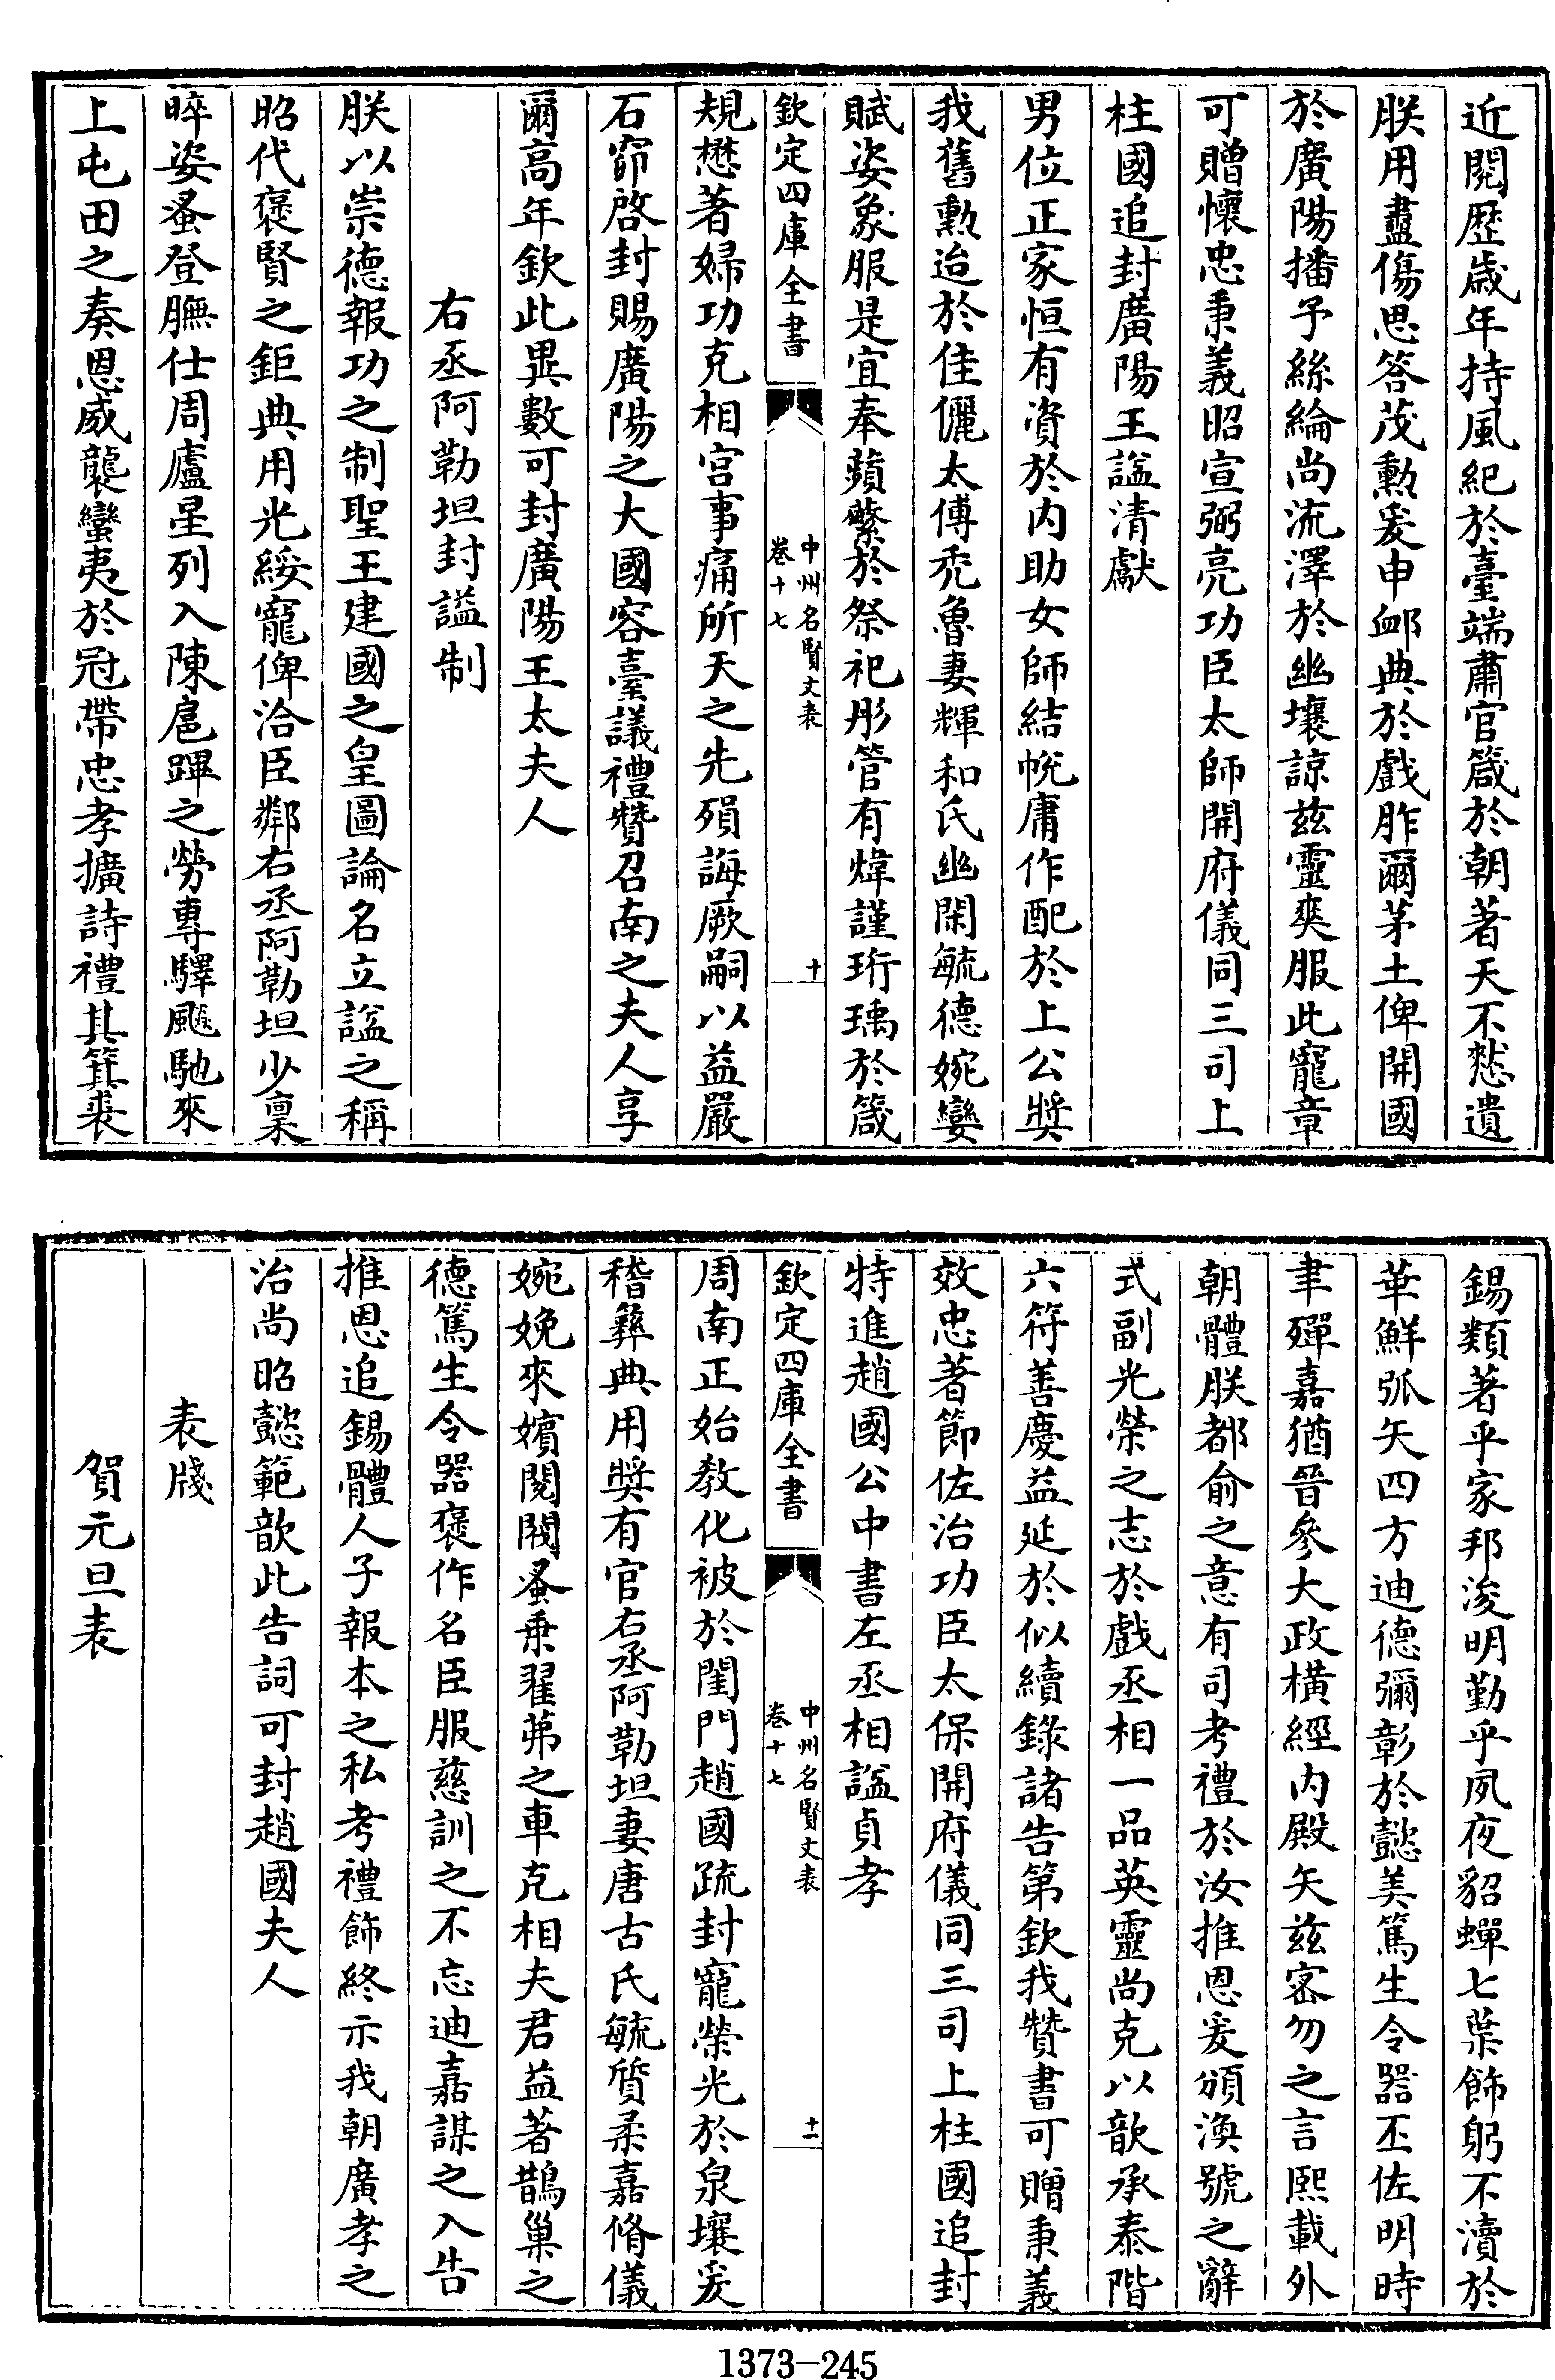 近閱歴歲年持風紀於臺端肅官箴於朝著天不憖遺
朕用盡傷思答茂勲爰申䘏典於戲胙爾茅土俾開國
於廣陽播予絲綸尚流澤於幽壤諒兹靈爽服此寵章
可贈懷忠秉義昭宣弼亮功臣太師開府儀同三司上
柱國追封廣陽王諡清獻
男位正家恒有資於内助女師結帨庸作配於上公奬
我舊勲迨於佳儷太傅禿魯妻輝和氏幽閑毓德婉孌
賦姿象服是宜奉蘋蘩於祭祀彤管有煒謹珩瑀於箴
欽定四庫全書
中州名賢文表
卷十七
十
規懋著婦功克相宫事痛所天之先殞誨厥嗣以益嚴
石窌啓封賜廣陽之大國容臺議禮贊召南之夫人享
爾高年欽此異數可封廣陽王太夫人
右丞阿勒坦封諡制
朕以崇德報功之制聖王建國之皇圖論名立諡之稱
昭代褒賢之鉅典用光綏寵俾洽臣鄰右丞阿勒坦少禀
晬姿蚤登膴仕周廬星列入陳扈蹕之勞專驛飈馳來
上屯田之奏恩威襲蠻夷於冠帶忠孝擴詩禮其箕裘
錫類著乎家邦浚明勤乎夙夜貂蟬七葉飾躬不瀆於
華鮮弧矢四方迪德彌彰於懿美篤生令器丕佐明時
聿殫嘉猶晉參大政横經内殿矢兹宻勿之言熙載外
朝體朕都俞之意有司考禮於汝推恩爰頒渙號之辭
式副光榮之志於戲丞相一品英靈尚克以歆承泰階
六符善慶益延於似續錄諸告第欽我贊書可贈秉義
效忠著節佐治功臣太保開府儀同三司上柱國追封
特進趙國公中書左丞相諡貞孝
欽定四庫全書
中州名賢文表
卷十七
十一
周南正始教化被於閨門趙國疏封寵榮光於泉壤爰
稽彝典用奬有官右丞阿勒坦妻唐古氏毓質柔嘉脩儀
婉娩來嬪閱閥蚤乗翟茀之車克相夫君益著鵲巢之
德篤生令器褒作名臣服慈訓之不忘迪嘉謀之入告
推恩追錫體人子報本之私考禮飾終示我朝廣孝之
治尚昭懿範歆此告詞可封趙國夫人
表牋
賀元旦表
1373-245